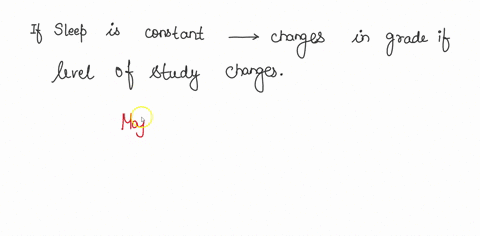 If Sleep is constant ⟶ changes in grade if
level of study changes.
Maj